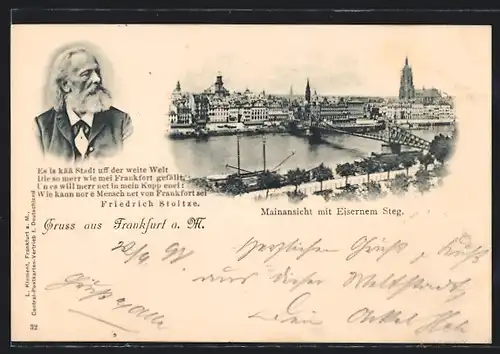 Es is kää Stadt uff der weite Welt
Die so merr wie mei Frankfort gefällt,
Un es will merr net in mein Kopp enei:
Wie kann nor e Mensch net von Frankfort sei
Friedrich Stoltze.
Mainansicht mit Eisernem Steg.
Gruss aus Frankfurt a. M.
L. Klement, Frankfurt a. M.,
Central-Postkarten-Vertrieb f. Deutschland
32
Herzlichen Gruß
aus dieser Weltstadt
Dein Onkel
Gruß